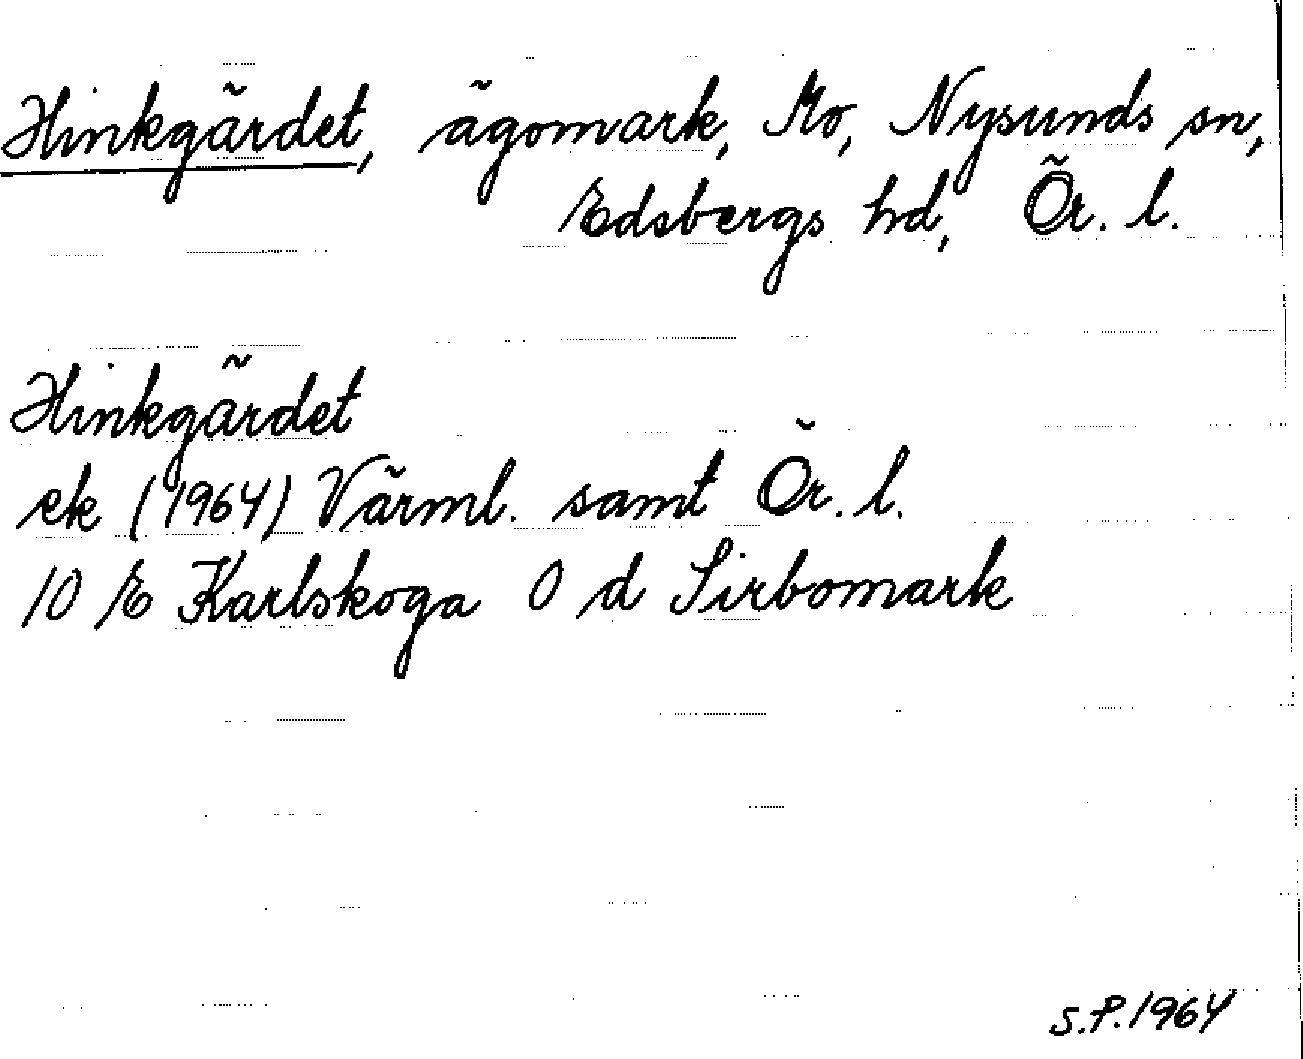 Hinkgärdet, ägomark, Mo, Nysunds sn,
Edsbergs hd, Ör. l.
Hinkgärdet
ek (1964) Värml. samt Ör. l.
10 E Karlskoga 0 d Sirbomark
S.P. 1964